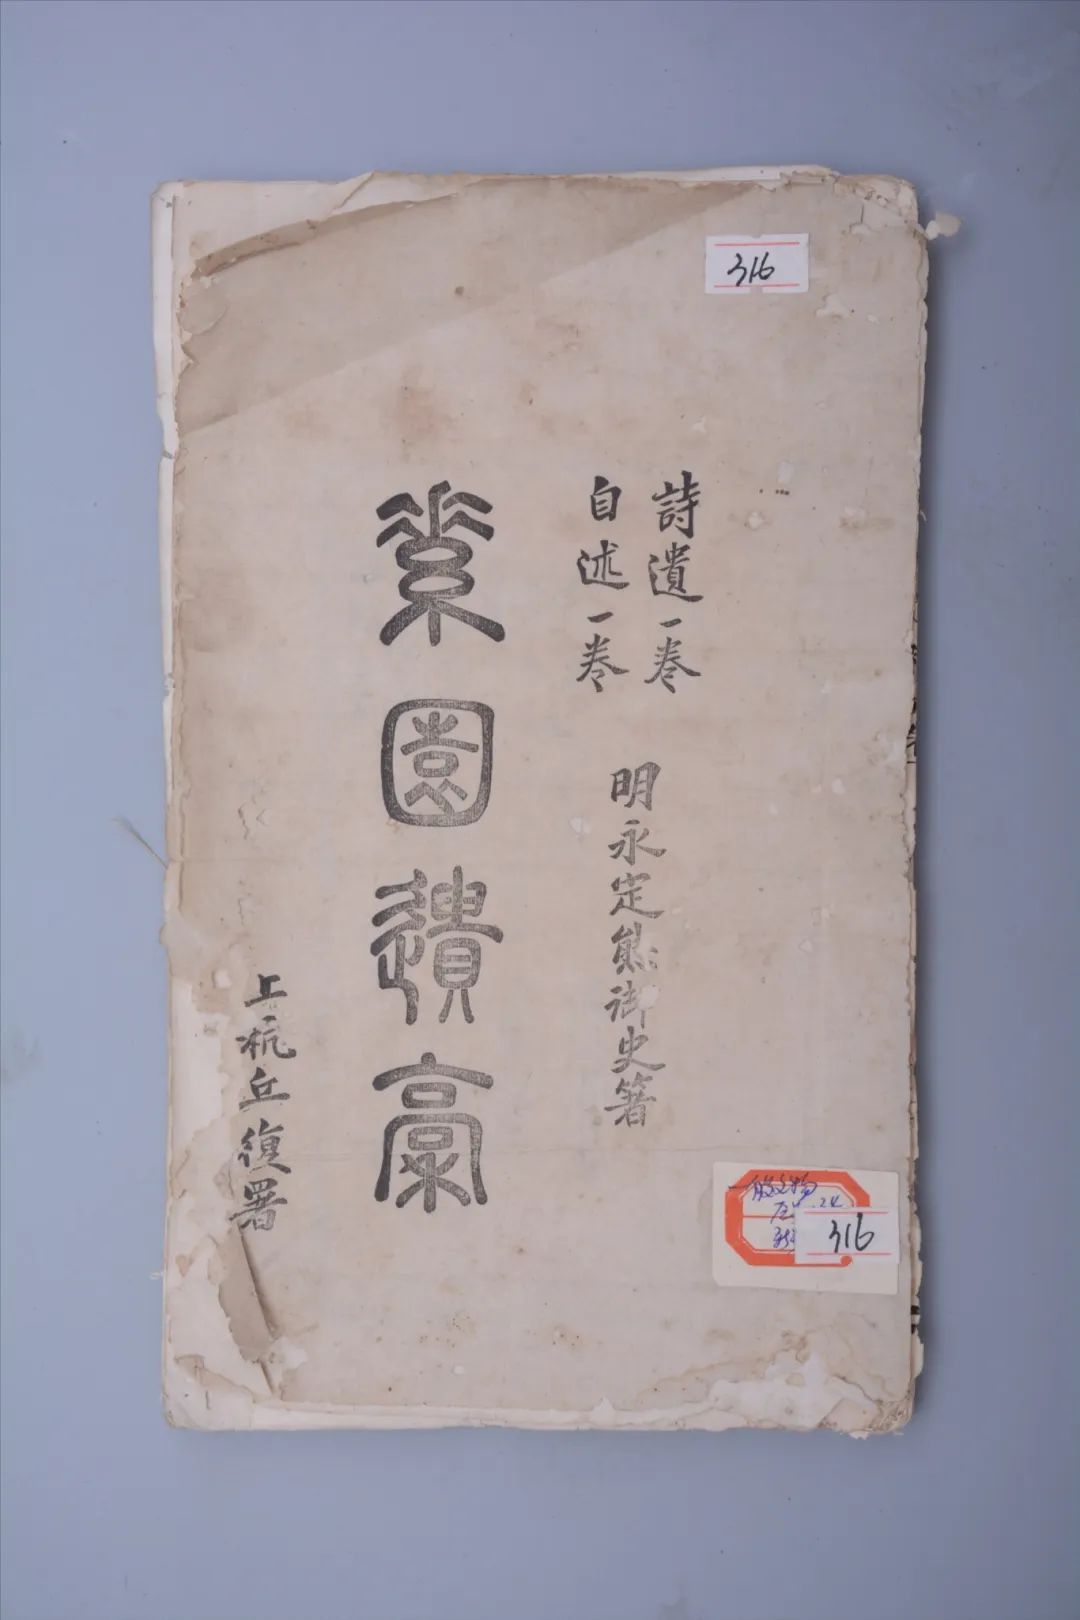 316
詩遺一卷
自述一卷
明永定熊御史箸
素園遺稾
上杭丘復署
一般文物
316